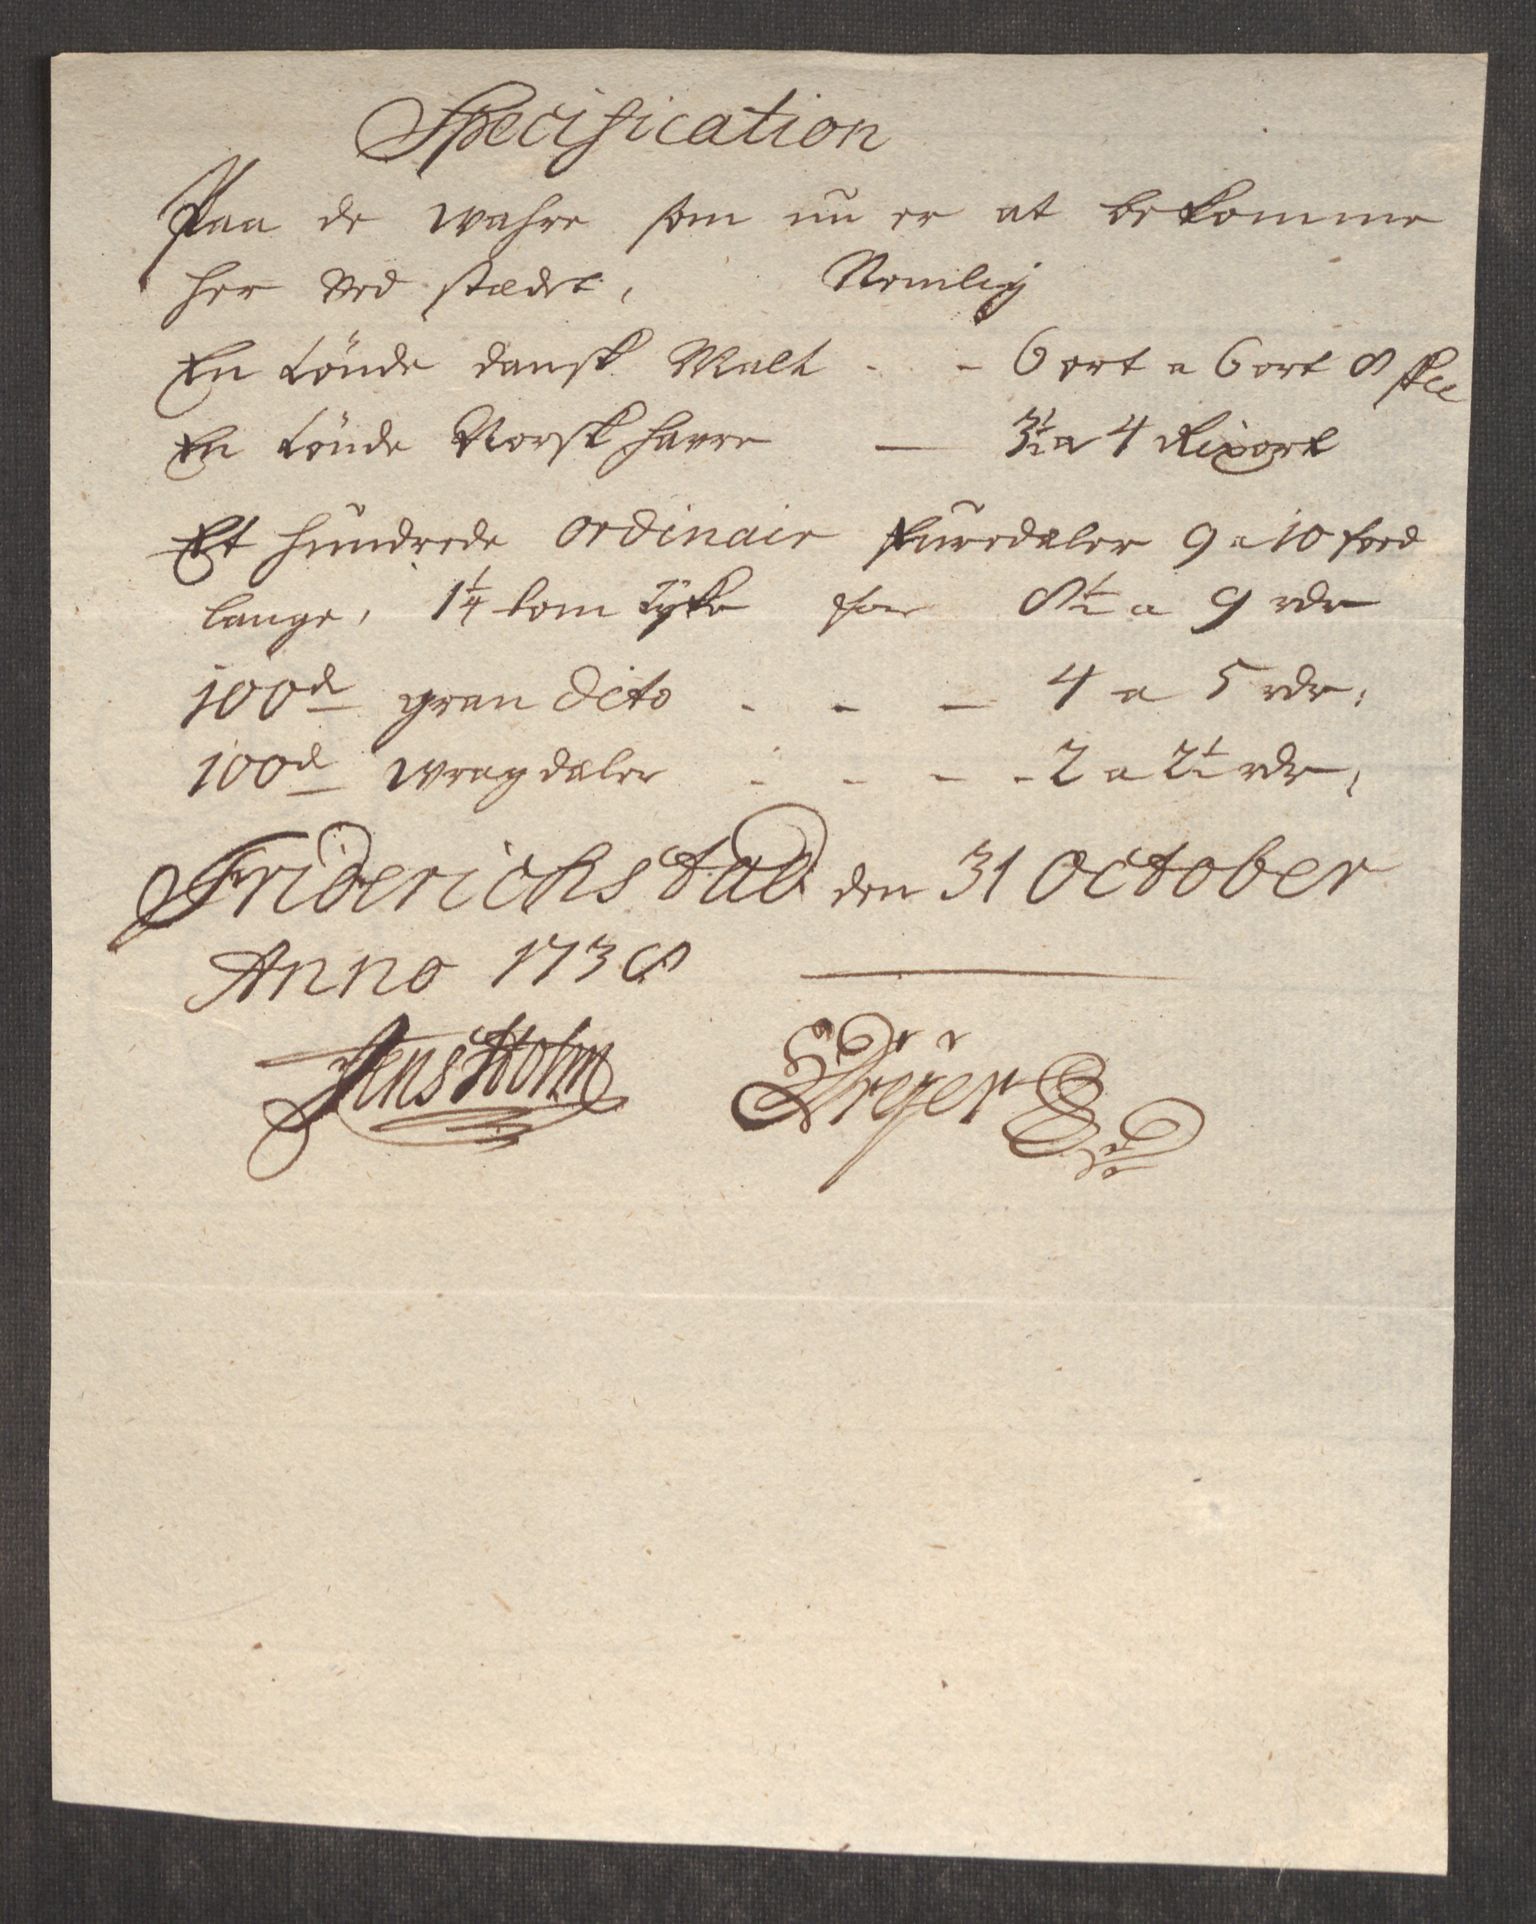 Specification
Paa de wahre som nu er at bekomme
her ved stædet, Nemlig
En tönde dansk Malt - - 6 ort a 6 ort 8 skll
En tönde Norsk havre — 3½ a 4 Rixort
Et hundrede ordinair furedæler 9 a 10 foed
lange, 1¼ tom tyke for 8½ a 9 rdr
100d gran dito - - - 4 a 5 rdr,
100d wragdæler - - - - 2 a 2½ rdr,
Friderichstad den 31 October
Anno 1738
Jens Holm Dreÿer